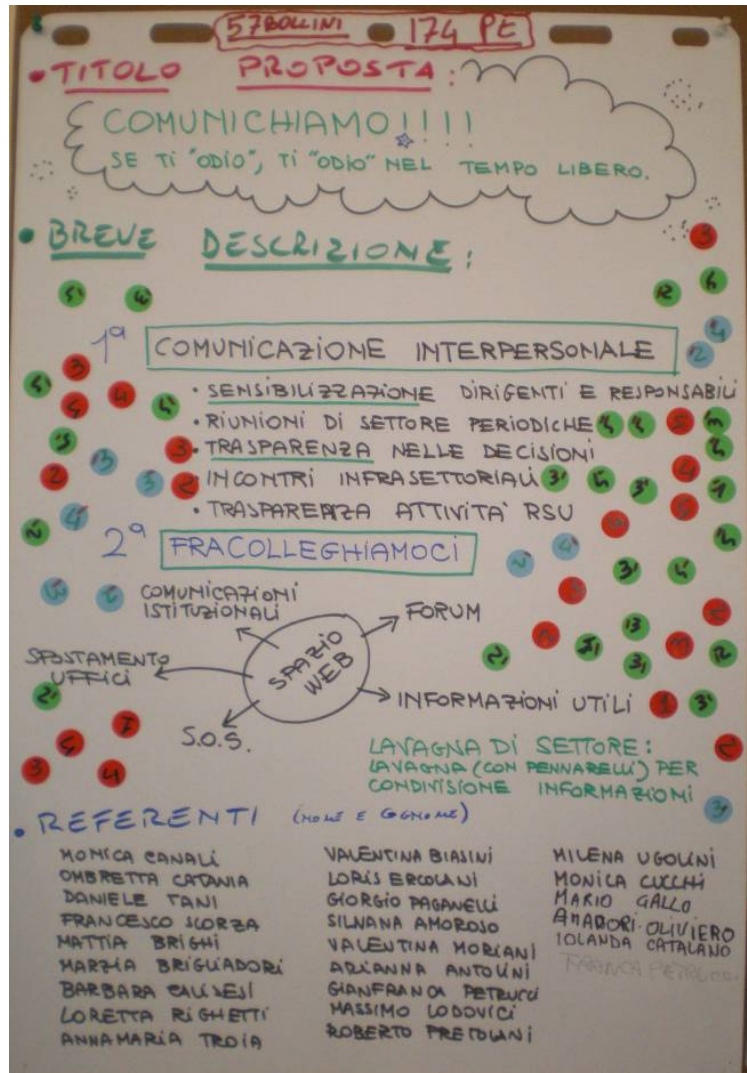 57 BOLLINI 174 PE
• TITOLO PROPOSTA:
COMUNICHIAMO!!!!
SE TI "ODIO", TI "ODIO" NEL TEMPO LIBERO.
• BREVE DESCRIZIONE:
1ª COMUNICAZIONE INTERPERSONALE
• SENSIBILIZZAZIONE DIRIGENTI E RESPONSABILI
• RIUNIONI DI SETTORE PERIODICHE
• TRASPARENZA NELLE DECISIONI
INCONTRI INFRASETTORIALI
• TRASPARENZA ATTIVITA' RSU
2ª FRACOLLEGHIAMOCI
COMUNICAZIONI
ISTITUZIONALI
FORUM
SPAZIO
WEB
SPOSTAMENTO
UFFICI
INFORMAZIONI UTILI
S.O.S.
LAVAGNA DI SETTORE:
LAVAGNA (CON PENNARELLI) PER
CONDIVISIONE INFORMAZIONI
• REFERENTI (NOME E COGNOME)
MONICA CANALI
OMBRETTA CATANIA
DANIELE TANI
FRANCESCO SCORZA
MATTIA BRIGHI
MARZIA BRIGLIADORI
BARBARA CALISESI
LORETTA RIGHETTI
ANNAMARIA TROIA
VALENTINA BIASINI
LORIS ERCOLANI
GIORGIO PAGANELLI
SILVANA AMOROSO
VALENTINA MORIANI
ARIANNA ANTOLINI
GIANFRANCA PETRUCCI
MASSIMO LODOVICI
ROBERTO PRETOLANI
MILENA UGOLINI
MONICA CUCCHI
MARIO GALLO
AMADORI OLIVIERO
IOLANDA CATALANO